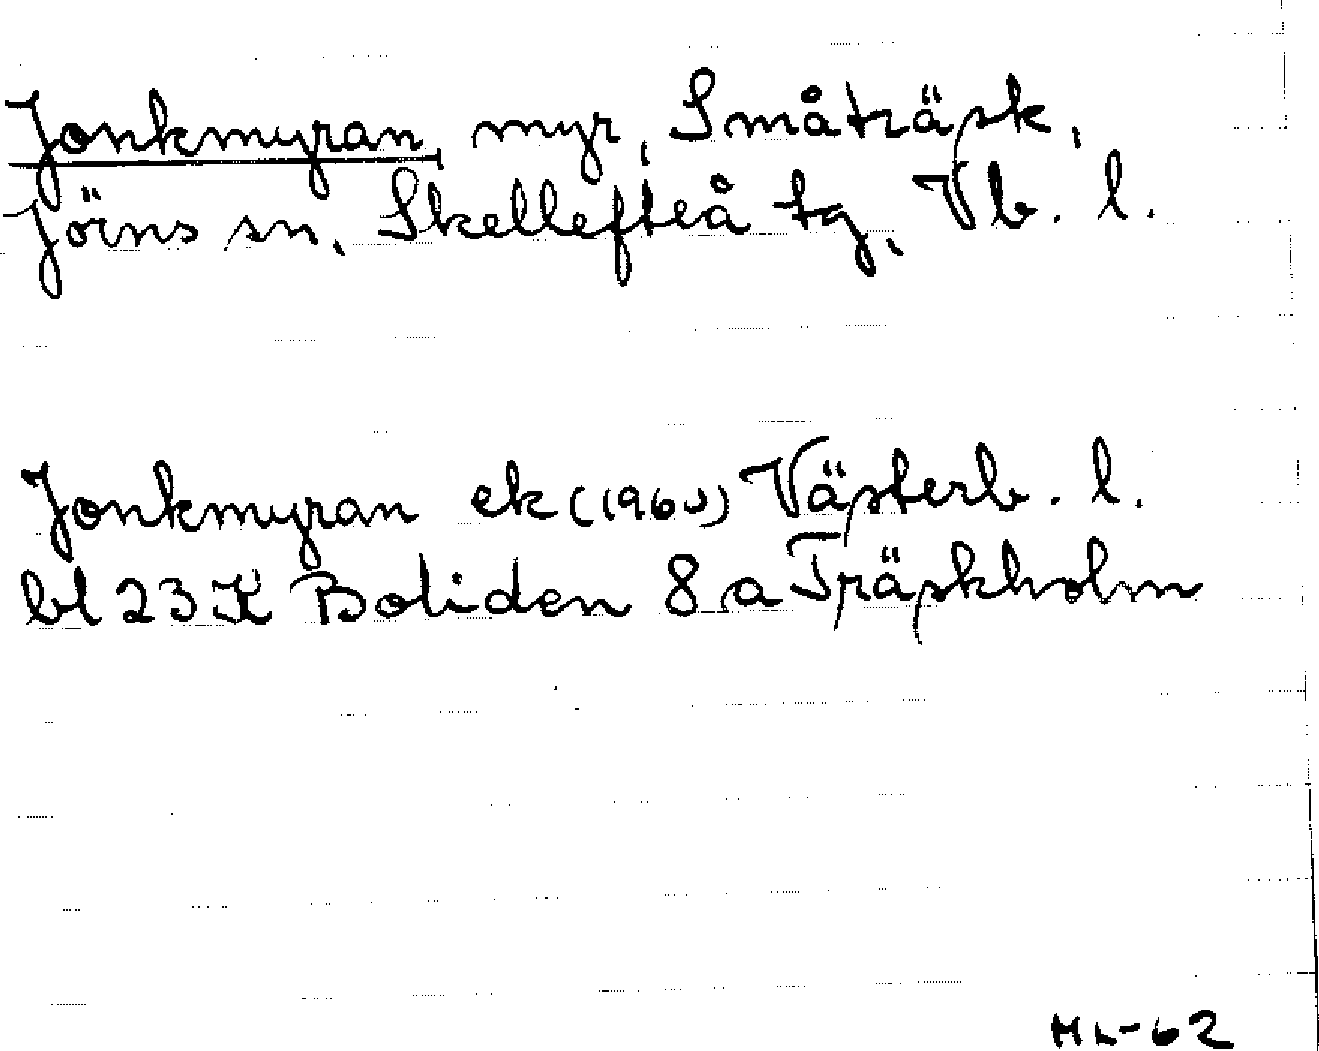 Jonkmyran, myr, Småträsk,
Jörns sn, Skellefteå tg, Vb. l.
Jonkmyran ek (1960) Västerb. l.
bl 23 K Boliden 8 a Träskholm
HL-62